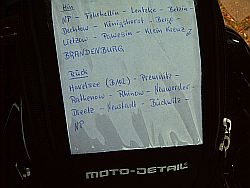 Hin
NP - Fehrbellin - Lentzke - Betzin -
Dechtow - Königshorst - Berge -
Lietzow - Pawesin - Klein Kreuz
BRANDENBURG
Rück
Havelsee (B102) - Premnitz -
Rathenow - Rhinow - Neuwerder -
Dreetz - Neustadt - Bückwitz -
NP
MOTO-DETAIL